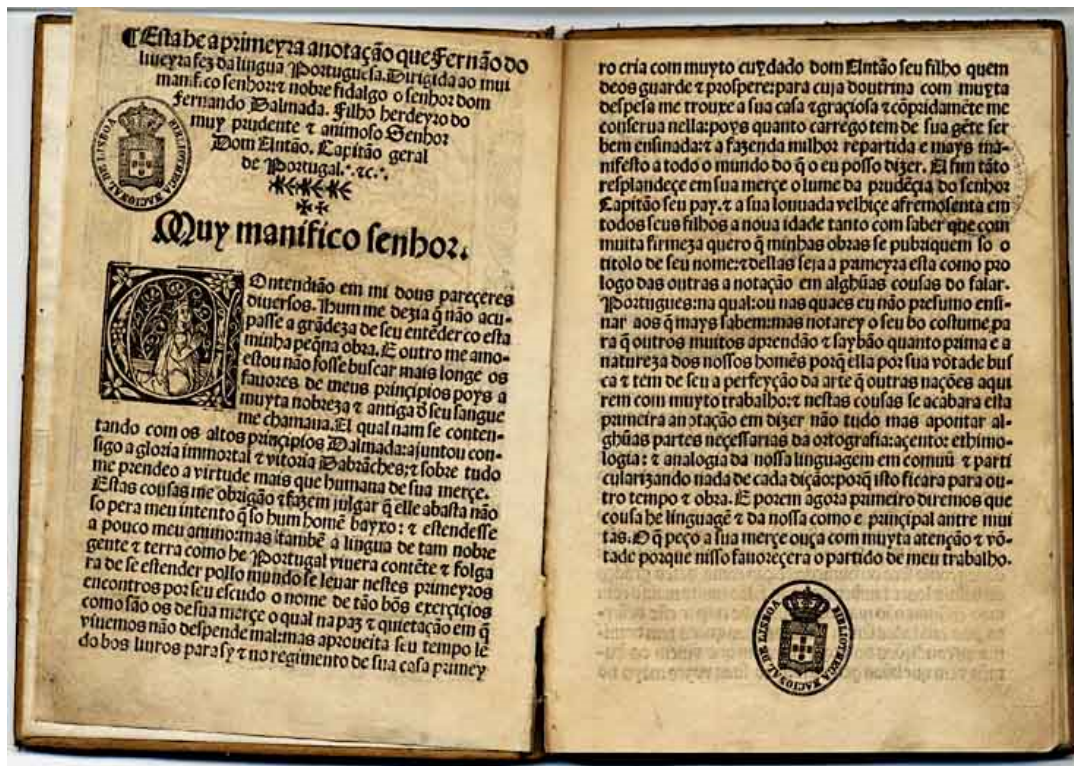 ¶Esta he a primeyra anotação que Fernão do
liueyra fez da lingua Portuguesa. Dirigida ao mui
manifico senhor: ⁊ nobre fidalgo o senhor dom
Fernando Dalmada. Filho herdeyro do
muy prudente ⁊ animoso Senhor
Dom Antão. Capitão geral
de Portugal.·.⁊c.·.
Muy manifico senhor.
Contendião em mi dous pareçeres
diuersos. Hum me dezia q̃ não acu-
passe a grãdeza de seu entẽder co esta
minha peq̃na obra. E outro me amo-
estou não fosse buscar mais longe os
fauores de meus prinçipios poys a
muyta nobreza ⁊ antiga d̃ seu sangue
me chamaua. El qual nam se conten-
tando com os altos prinçipios Dalmada: ajuntou con-
sigo a gloria immortal ⁊ vitoria Dabrãches: ⁊ sobre tudo
me prendeo a virtude mais que humana de sua merçe.
Estas cousas me obrigão ⁊ fazem julgar q̃ elle abasta não
so pera meu intento q̃ so hum homẽ bayxo: ⁊ estendesse
a pouco meu animo: mas tambẽ a lingua de tam nobre
gente ⁊ terra como he Portugal viuera contẽte ⁊ folga
ra de se estender pollo mundo se leuar nestes primeyros
encontros por seu escudo o nome de tão bõs exerçiçios
como são os de sua merçe o qual na paz ⁊ quietação em q̃
viuemos não despende mal: mas aproueita seu tempo lẽ
do bos liuros para sy ⁊ no regimento de sua casa primey
ro cria com muyto cuydado dom Antão seu filho quem
deos guarde ⁊ prospere: para cuja doutrina com muyta
despesa me trouxe a sua casa ⁊ graçiosa ⁊ cõpridamẽte me
conserua nella: poys quanto carrego tem de sua gẽte ser
bem ensinada: ⁊ a fazenda milhor repartida e mays ma-
nifesto a todo o mundo do q̃ o eu posso dizer. A fim tãto
resplandeçe em sua merçe o lume da prudẽçia do senhor
Capitão seu pay. ⁊ a sua louuada velhiçe afremosenta em
todos seus filhos a noua idade tanto com saber que com
muita firmeza quero q̃ minhas obras se pubriquem so o
titolo de seu nome: ⁊ dellas seja a primeyra esta como pro
logo das outras a notação em alghũas cousas do falar.
Portugues: na qual: ou nas quaes eu não presumo ensi-
nar aos q̃ mays sabem: mas notarey o seu bo costume pa
ra q̃ outros muitos aprendão ⁊ saybão quanto prima e a
natureza dos nossos homẽs porq̃ ella por sua võtade bus
ca ⁊ tem de seu a perfeyção da arte q̃ outras nações aqui
rem com muyto trabalho: ⁊ nestas cousas se acabara esta
primeira anotação em dizer não tudo mas apontar al-
ghũas partes neçessarias da ortografia: açento: ethimo-
logia: ⁊ analogia da nossa linguagem em comuũ ⁊ parti
cularizando nada de cada dição: porq̃ isto ficara para ou-
tro tempo ⁊ obra. E porem agora primeiro diremos que
cousa he linguagẽ ⁊ da nossa como e prinçipal antre mui
tas. O q̃ peço a sua merçe ouça com muyta atenção ⁊ võ-
tade porque nisso fauoreçera o partido de meu trabalho.
BIBLIOTHECA NACIONAL DE LISBOA
BIBLIOTHECA NACIONAL DE LISBOA